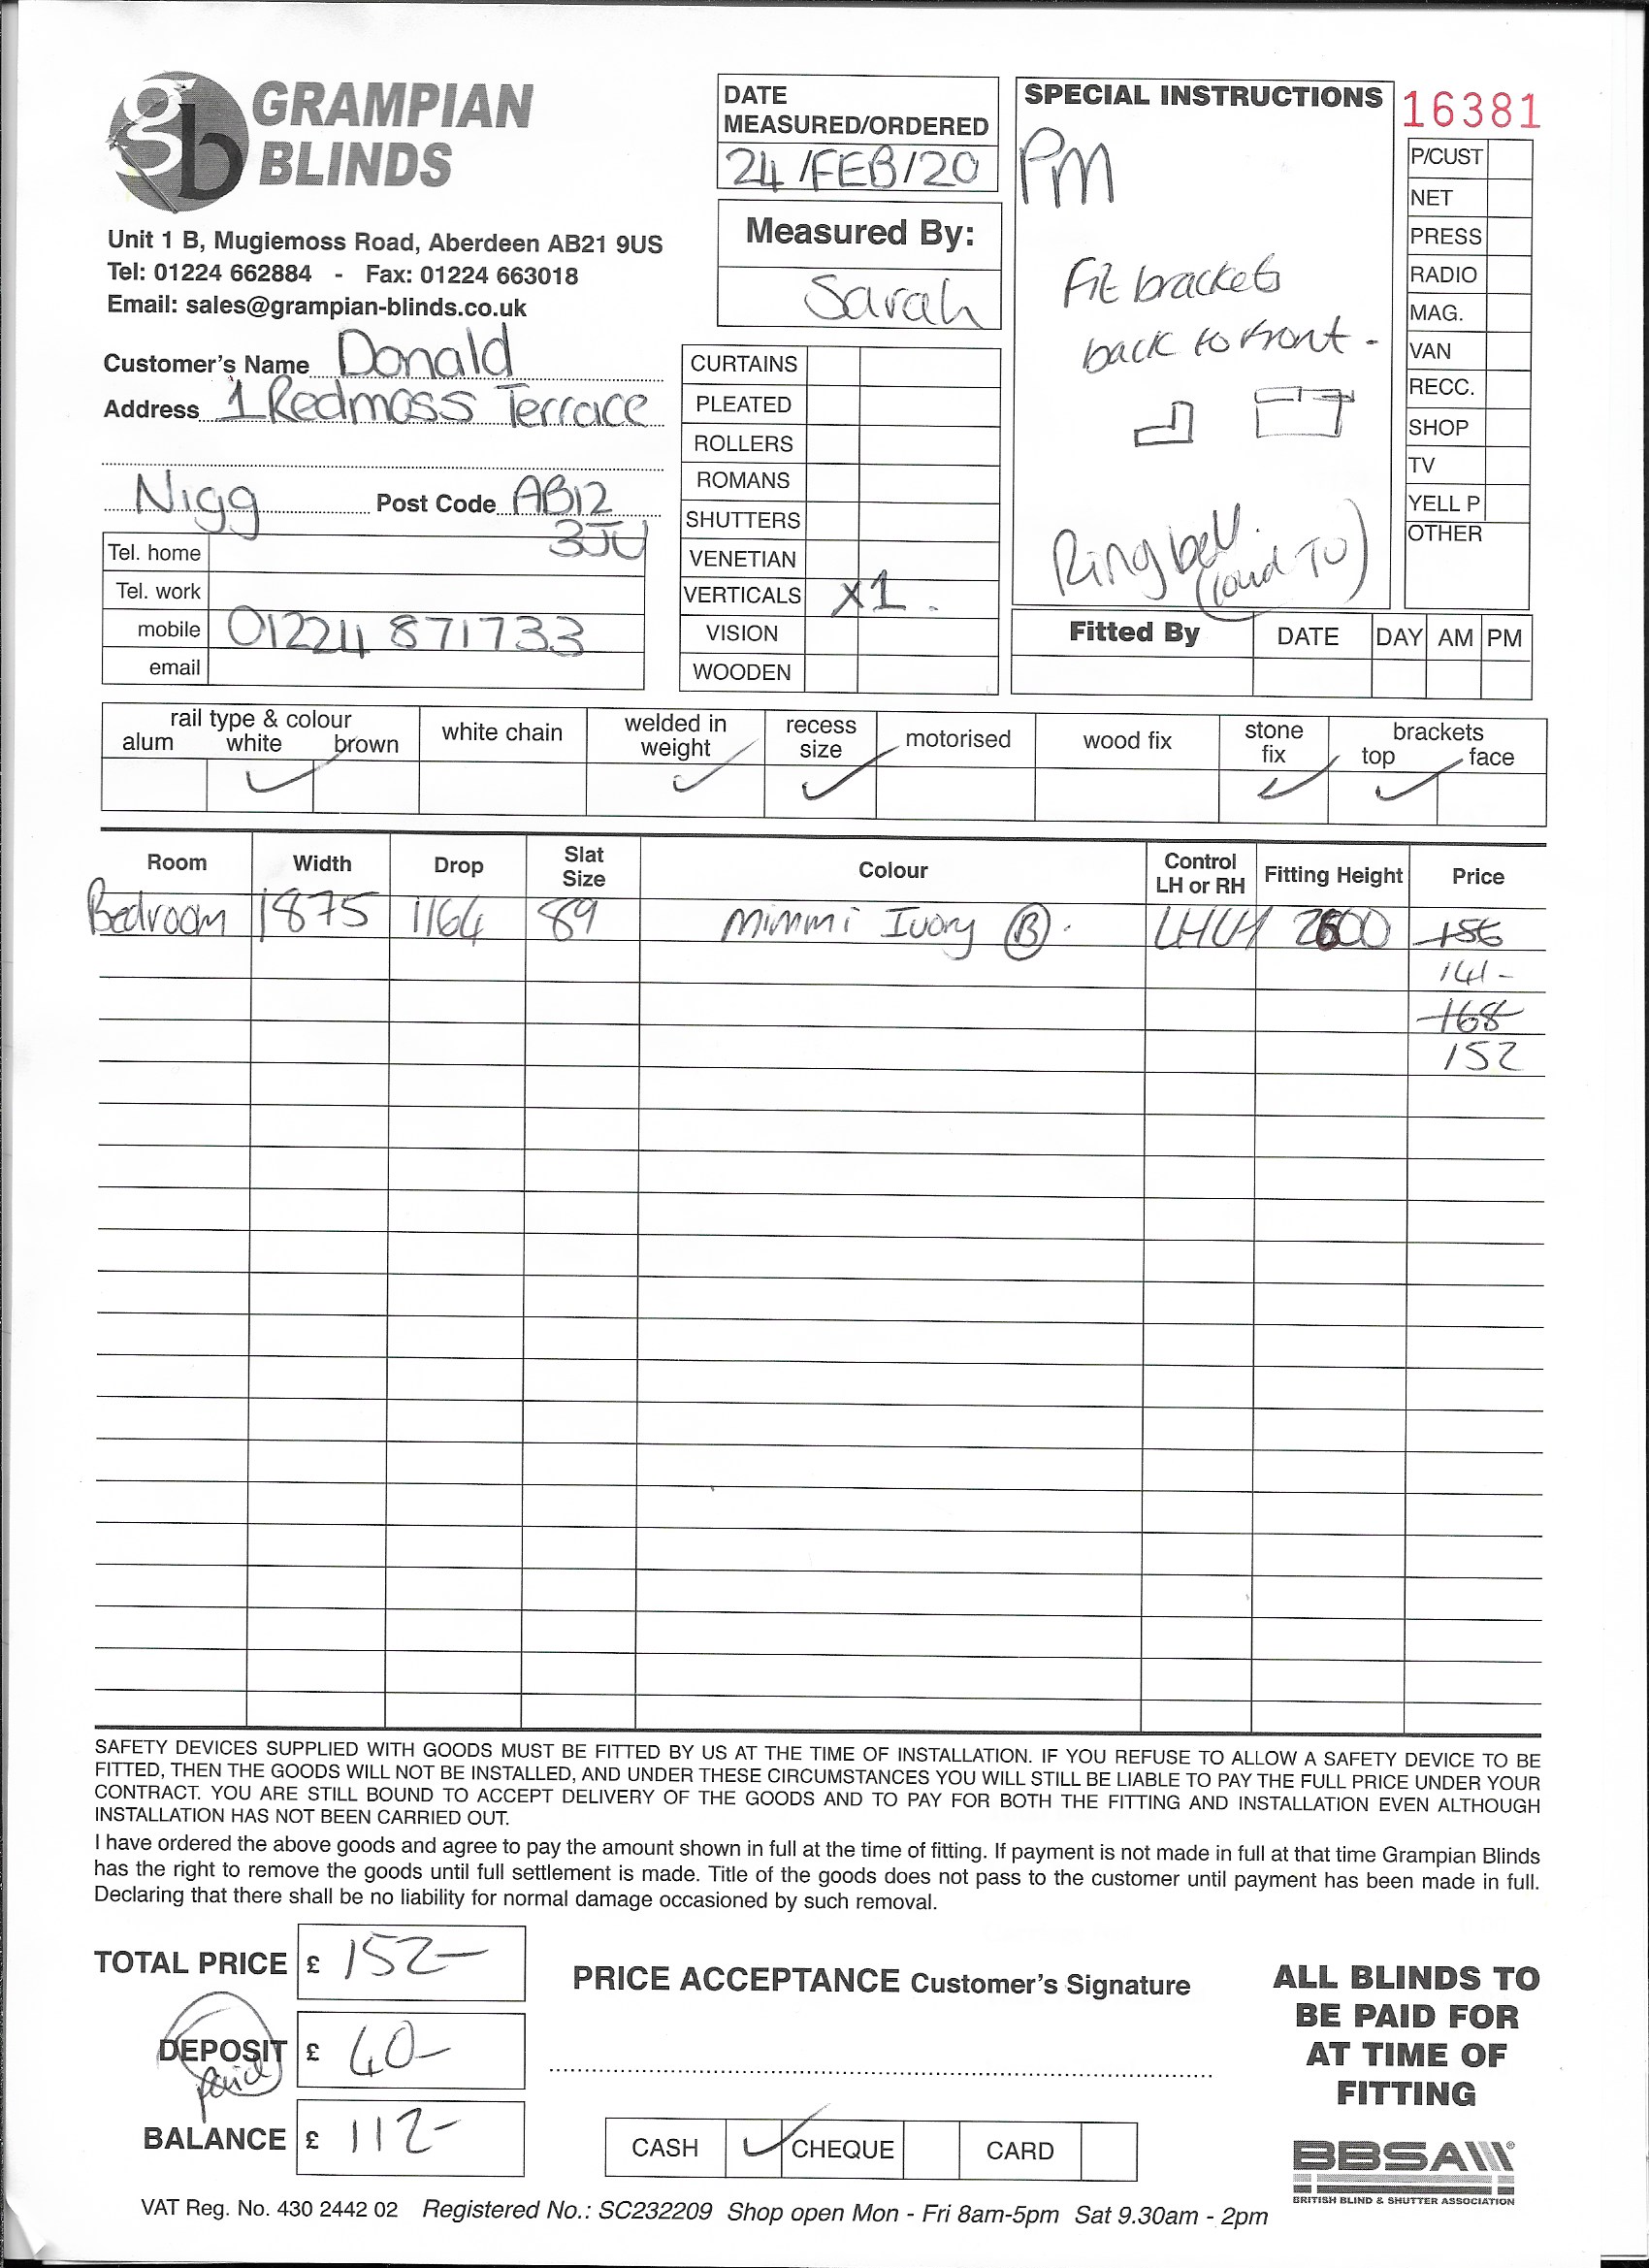 gb GRAMPIAN
BLINDS
Unit 1 B, Mugiemoss Road, Aberdeen AB21 9US
Tel: 01224 662884 - Fax: 01224 663018
Email: sales@grampian-blinds.co.uk
Customer's Name Donald
Address 1 Redmoss Terrace
Nigg Post Code AB12
3JU
Tel. home
Tel. work
mobile 01224 871733
email
DATE
MEASURED/ORDERED
24/FEB/20
Measured By:
Sarah
CURTAINS
PLEATED
ROLLERS
ROMANS
SHUTTERS
VENETIAN
VERTICALS X1.
VISION
WOODEN
SPECIAL INSTRUCTIONS
PM
Fit brackets
back to front -
Ring bell.
(loud TV)
16381
P/CUST
NET
PRESS
RADIO
MAG.
VAN
RECC.
SHOP
TV
YELL P
OTHER
Fitted By DATE DAY AM PM
rail type & colour
alum white brown
white chain
welded in
weight
recess
size
motorised
wood fix
stone
fix
brackets
top face
Room Width Drop Slat Size Colour Control LH or RH Fitting Height Price
Bedroom 1875 1164 89 Mimmi Ivory (B). LHLH 2600 156
141-
168
152
SAFETY DEVICES SUPPLIED WITH GOODS MUST BE FITTED BY US AT THE TIME OF INSTALLATION. IF YOU REFUSE TO ALLOW A SAFETY DEVICE TO BE
FITTED, THEN THE GOODS WILL NOT BE INSTALLED, AND UNDER THESE CIRCUMSTANCES YOU WILL STILL BE LIABLE TO PAY THE FULL PRICE UNDER YOUR
CONTRACT. YOU ARE STILL BOUND TO ACCEPT DELIVERY OF THE GOODS AND TO PAY FOR BOTH THE FITTING AND INSTALLATION EVEN ALTHOUGH
INSTALLATION HAS NOT BEEN CARRIED OUT.
I have ordered the above goods and agree to pay the amount shown in full at the time of fitting. If payment is not made in full at that time Grampian Blinds
has the right to remove the goods until full settlement is made. Title of the goods does not pass to the customer until payment has been made in full.
Declaring that there shall be no liability for normal damage occasioned by such removal.
TOTAL PRICE £ 152-
DEPOSIT £ 40-
paid
BALANCE £ 112-
PRICE ACCEPTANCE Customer's Signature
CASH CHEQUE CARD
ALL BLINDS TO
BE PAID FOR
AT TIME OF
FITTING
BBSA
BRITISH BLIND & SHUTTER ASSOCIATION
VAT Reg. No. 430 2442 02 Registered No.: SC232209 Shop open Mon - Fri 8am-5pm Sat 9.30am - 2pm